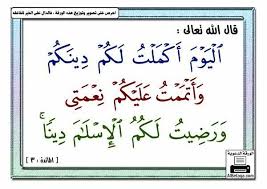 احرص على تصوير وتوزيع هذه الورقة ، فالدال على الخير كفاعله
قال الله تعالى :
ٱلۡيَوۡمَ أَكۡمَلۡتُ لَكُمۡ دِينَكُمۡ
وَأَتۡمَمۡتُ عَلَيۡكُمۡ نِعۡمَتِي
وَرَضِيتُ لَكُمُ ٱلۡإِسۡلَٰمَ دِينٗاۚ
[ المائدة : ٣ ]
الورقة الدعوية